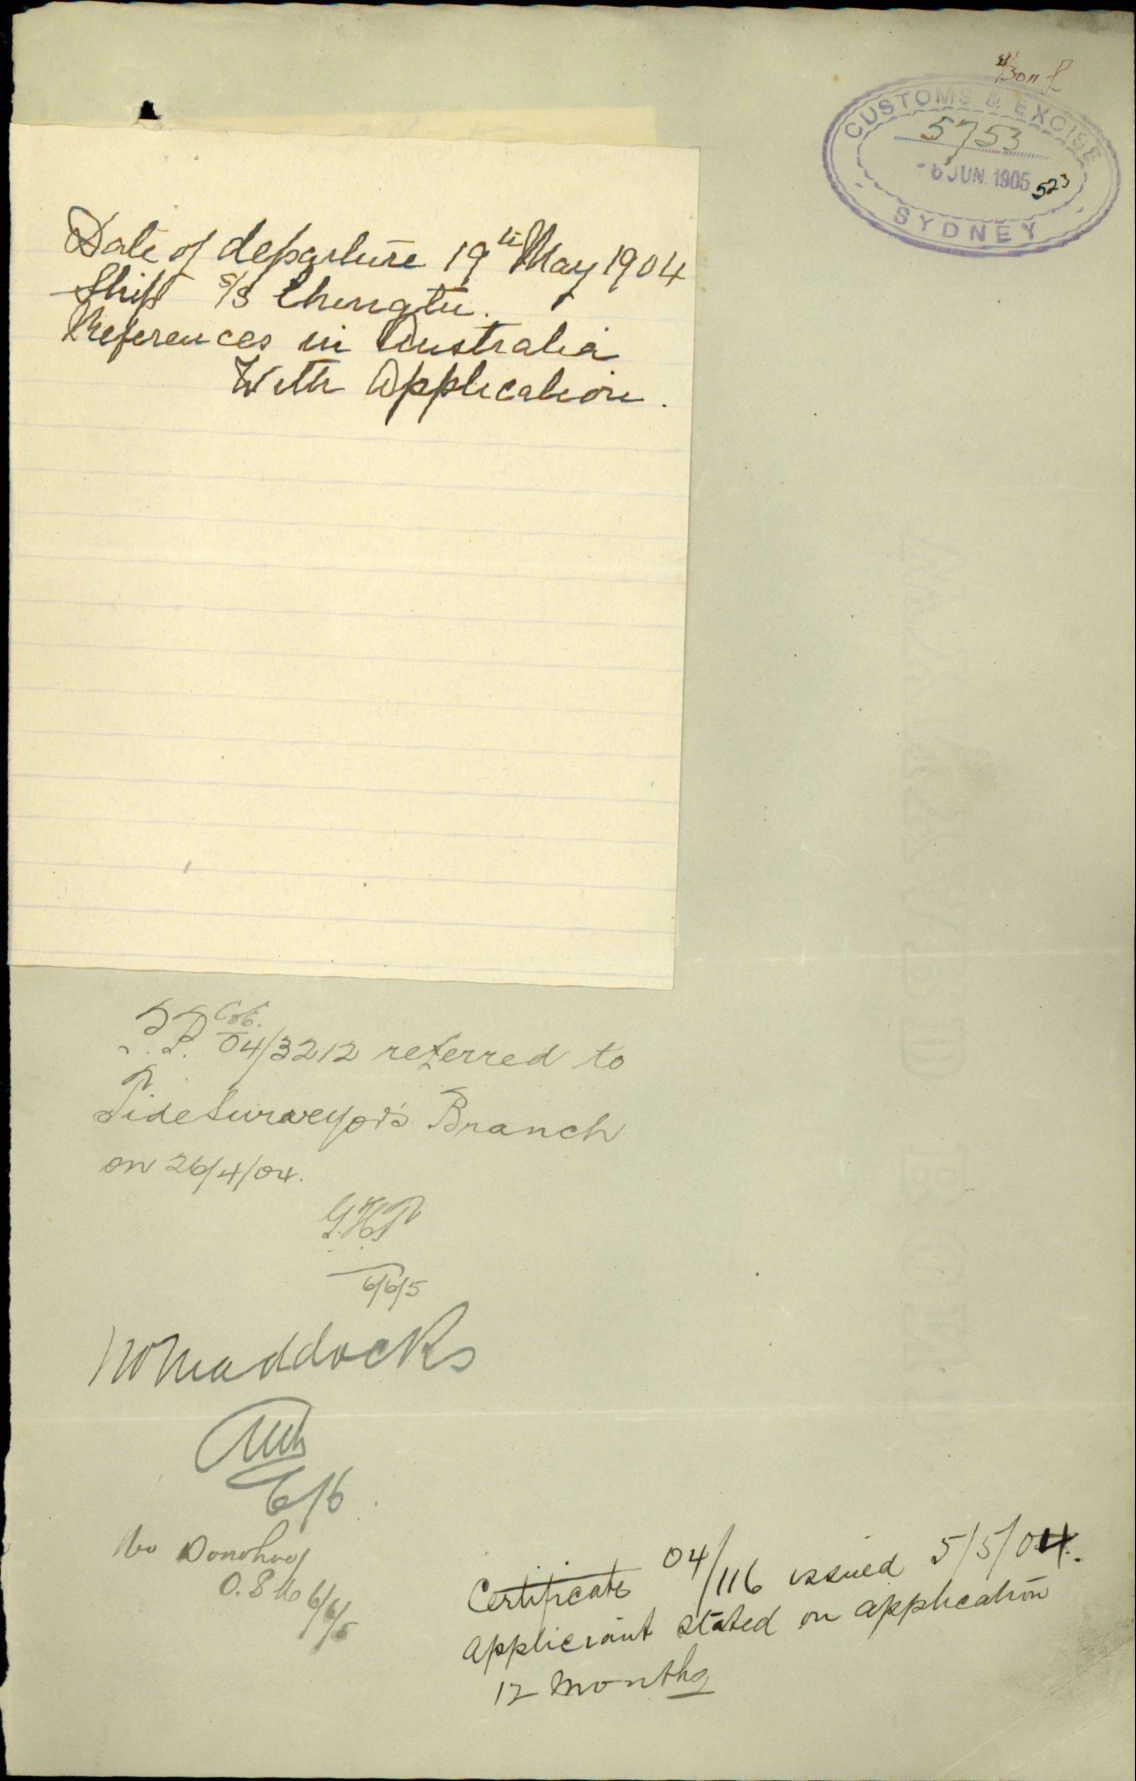 CUSTOMS & EXCISE
5753
- 6 JUN. 1905
523
SYDNEY
Date of departure 19th May 1904
Ship S/S Chingtu.
References in Australia
With Application.
04/3212 referred to
Tide Surveyor's Branch
on 26/4/04.
G.H.P
6/6/5
Mr Maddocks
6/6
Mr Donohoe
6/6/5
Certificate 04/116 issued 5/5/04.
Applicant stated on application
12 months